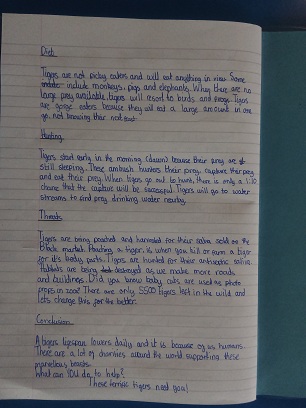 Diet
Tigers are not picky eaters and will eat anything in view. Some
include monkeys, pigs and elephants. When there are no
large prey available, tigers will resort to birds and. Tigers
are gorge eaters because they will eat a large amount in one
go, not knowing their next
Hunting
Tigers start early in the morning (dawn) because their prey are
still sleeping. These ambush hunters their prey, capture their prey
and eat their prey. When tigers go out to hunt, there is only a 1:20
chance that the capture will be successful. Tigers will go to water
streams to find prey drinking water nearby.
Threats
Tigers are being poached and harvested for their sold on the
black market. Poaching a tiger is when you kill or harm a tiger
for it's body parts. Tigers are hunted for their
Habitats are being destroyed as we make more roads
and buildings. Did you know baby cubs are used as photo
props in zoos? There are only 5500 tigers left in the wild and
lets change this for the better.
Conclusion
A tigers lifespan lowers daily and it is because of us humans.
There are a lot of charities around the world supporting these
marvellous beasts.
What can YOU do to help?
These terrific tigers need you!